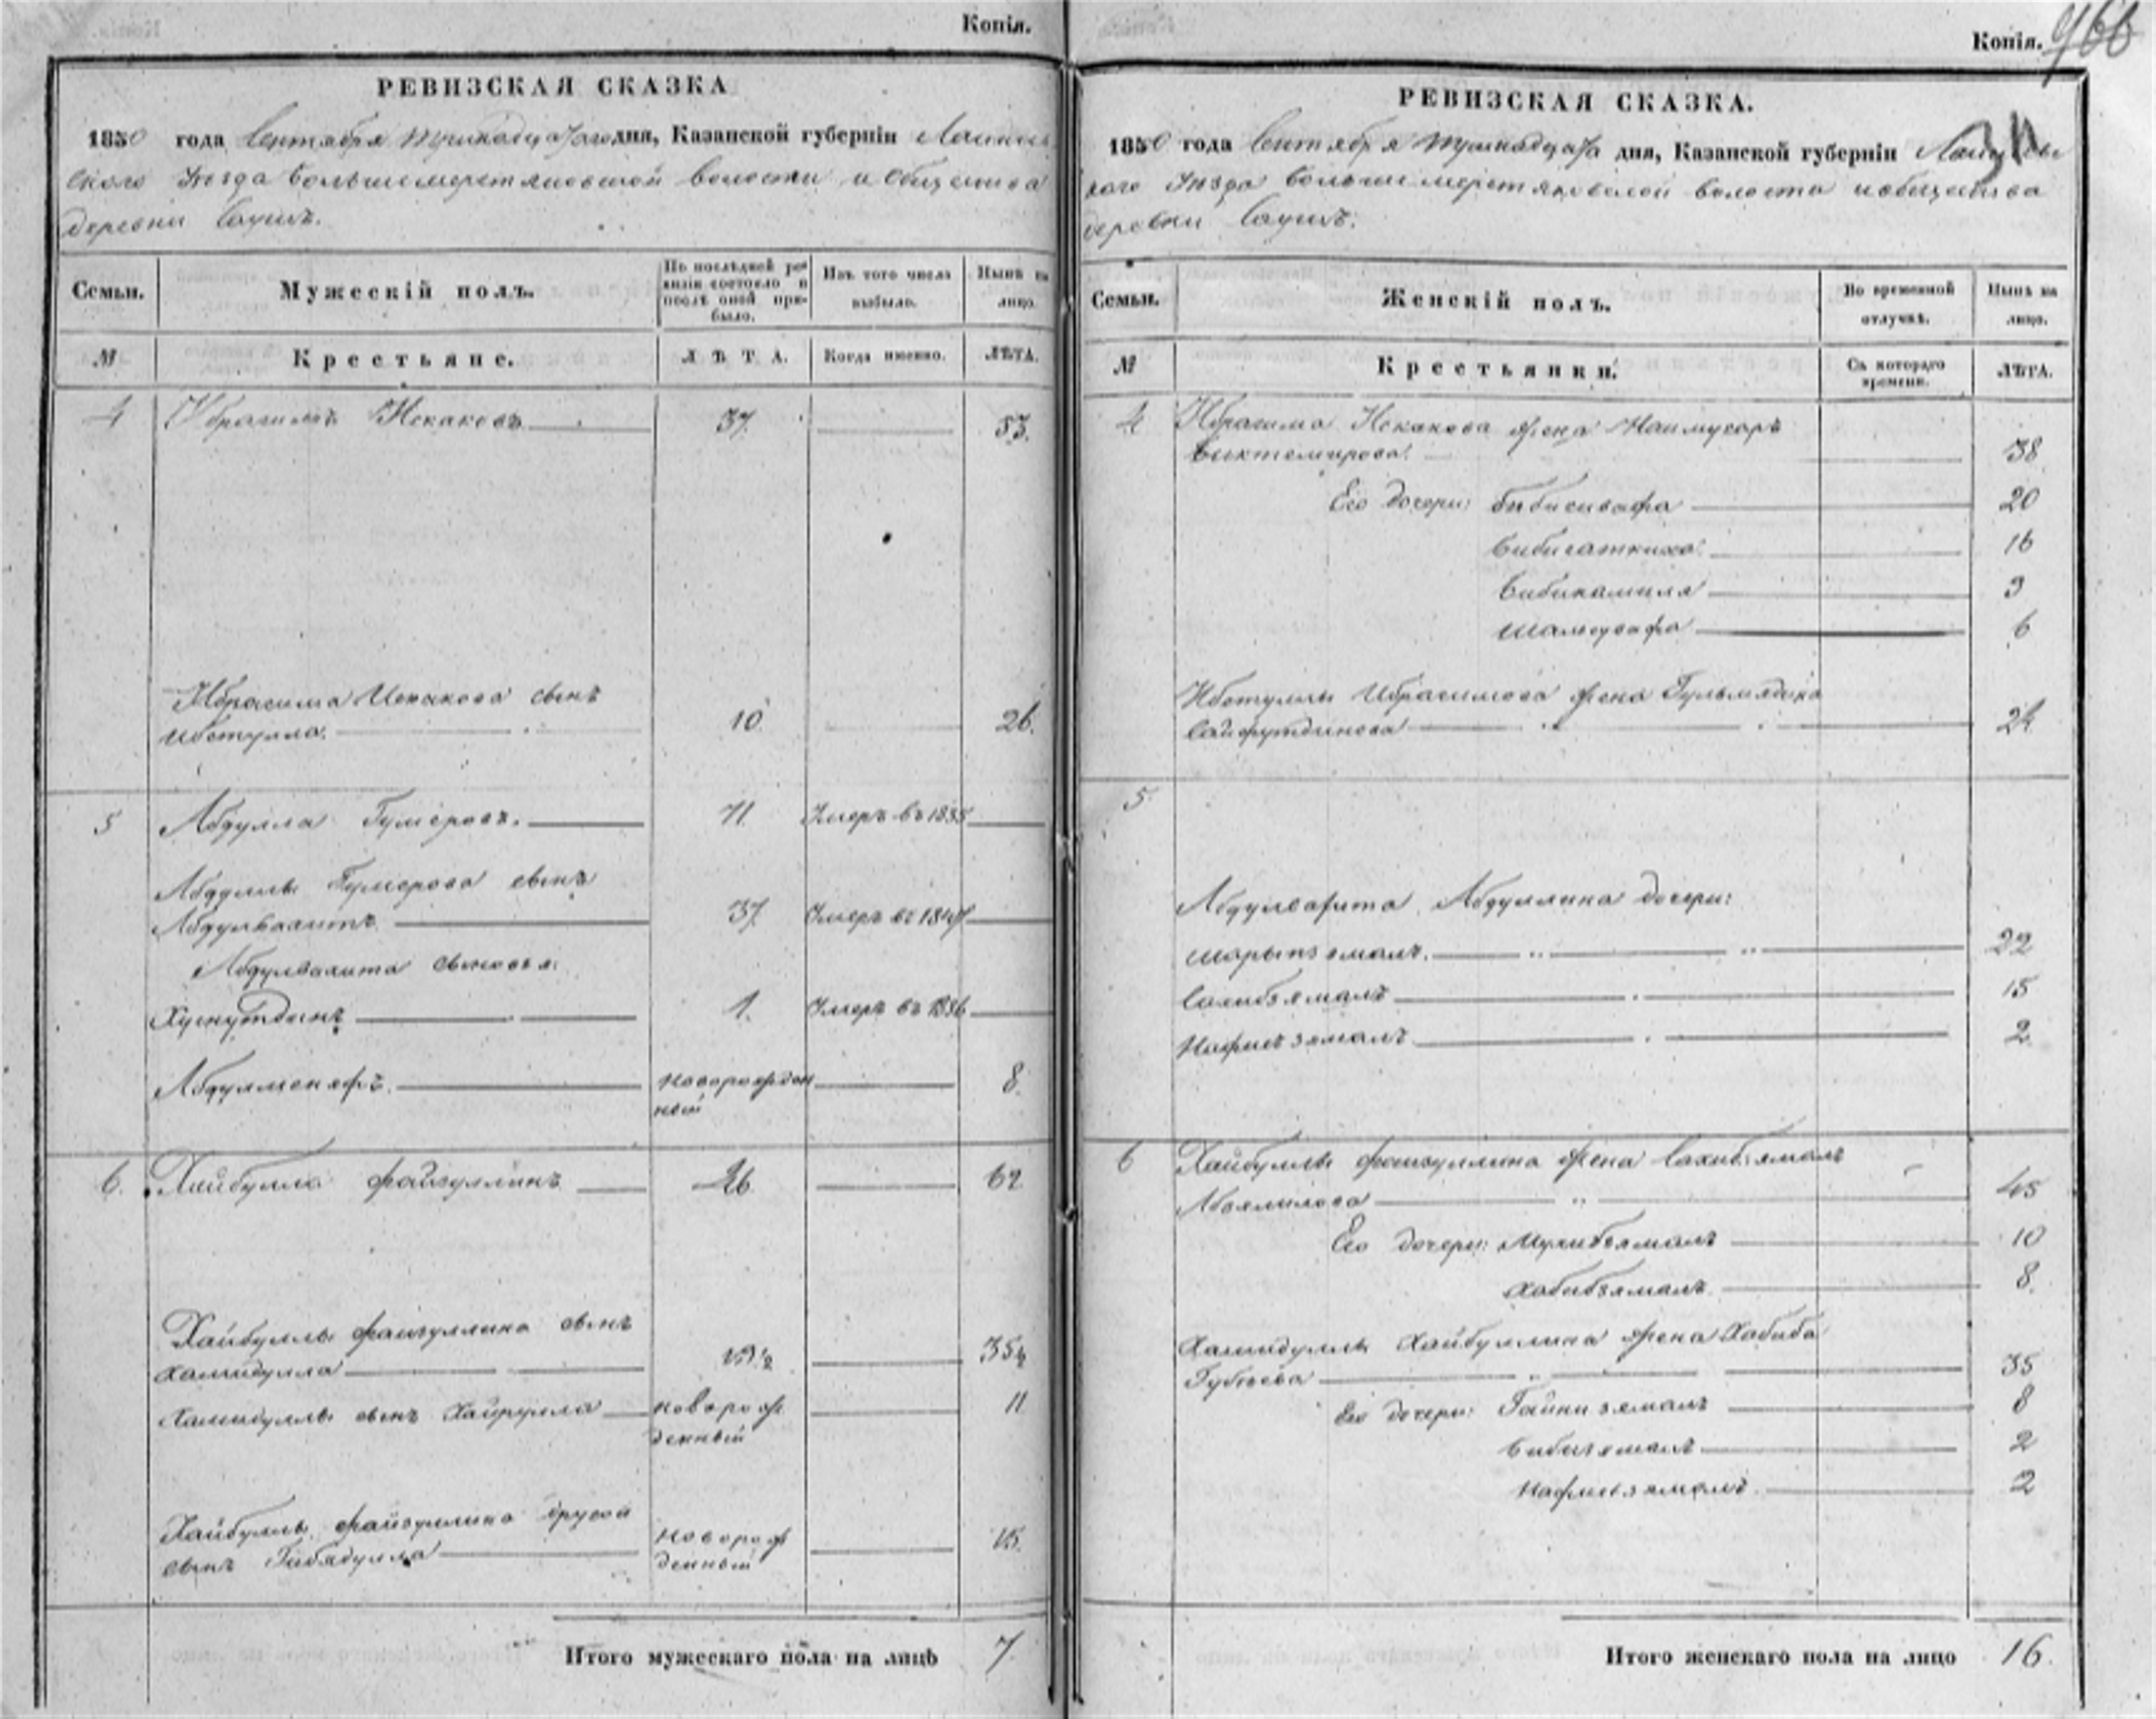 Копія.
РЕВИЗСКАЯ СКАЗКА
1850 года Сентября тринадцатаго дня, Казанской губерніи Лаишев
скаго Уезда волости и Общества
деревни Сауш.
Семьи.
Мужескій полъ.
По послѣдней ре-
визіи состояло и
послѣ оной при-
было.
Изъ того числа
выбыло.
Нынѣ на
лицо.
№
Крестьяне.
ЛѢТА.
Когда именно.
ЛѢТА.
4 Ибрагимъ Искаковъ 37. 53.
Ибрагима Искакова сынъ
Ибетулла. 10 26.
5 Абдулла Гумеровъ. 71. Умеръ въ 1835
Абдуллы Гумерова сынъ
Абдулвагитъ 37. Умеръ въ
Абдулвагита сыновья:
Хуснутдинъ 1. Умеръ въ 1836
Абдулменафъ новорожден 8.
ный
6. Хайбулла Файзуллинъ 46 62
Хайбуллы Файзуллина сынъ
Хамидулла 35½
Хамидуллы сынъ Хайрулла новорож 11
денный
Хайбуллы Файзуллина другой новорож
сынъ Гибядулла денный 15.
Итого мужескаго пола на лицо 7
Копія. 966
РЕВИЗСКАЯ СКАЗКА.
1850 года Сентября тринадцата дня, Казанской губерніи Лаишевс
каго Уезда волости и общества
деревни Сауш.
Семьи.
Женскій полъ.
Во временной
отлучкѣ.
Нынѣ на
лицо.
№
Крестьянки.
Съ котораго
времени.
ЛѢТА.
4 Ибрагима Искакова жена
Биктемирова. 38
Его дочери: Бибисивафа 20
16
Бибикамиля 9
Шамсувафа 6
Ибетуллы Ибрагимова жена
Сайфутдинова 24
5.
Абдулвагита Абдуллина дочери:
Шарыпзямалъ. 22
Салибзямалъ 15
Нафисзямалъ 2
6 Хайбуллы Файзуллина жена Сахибзямалъ
Абзялилова 45
Его дочери: Мухибзямалъ 10
Хабибзямалъ 8.
Хамидуллы Хайбуллина жена Хабиба
Губаева 35
Его дочери: Гайнизямалъ 8
Бибизямалъ 2
Нафисзямалъ. 2
Итого женскаго пола на лицо 16.